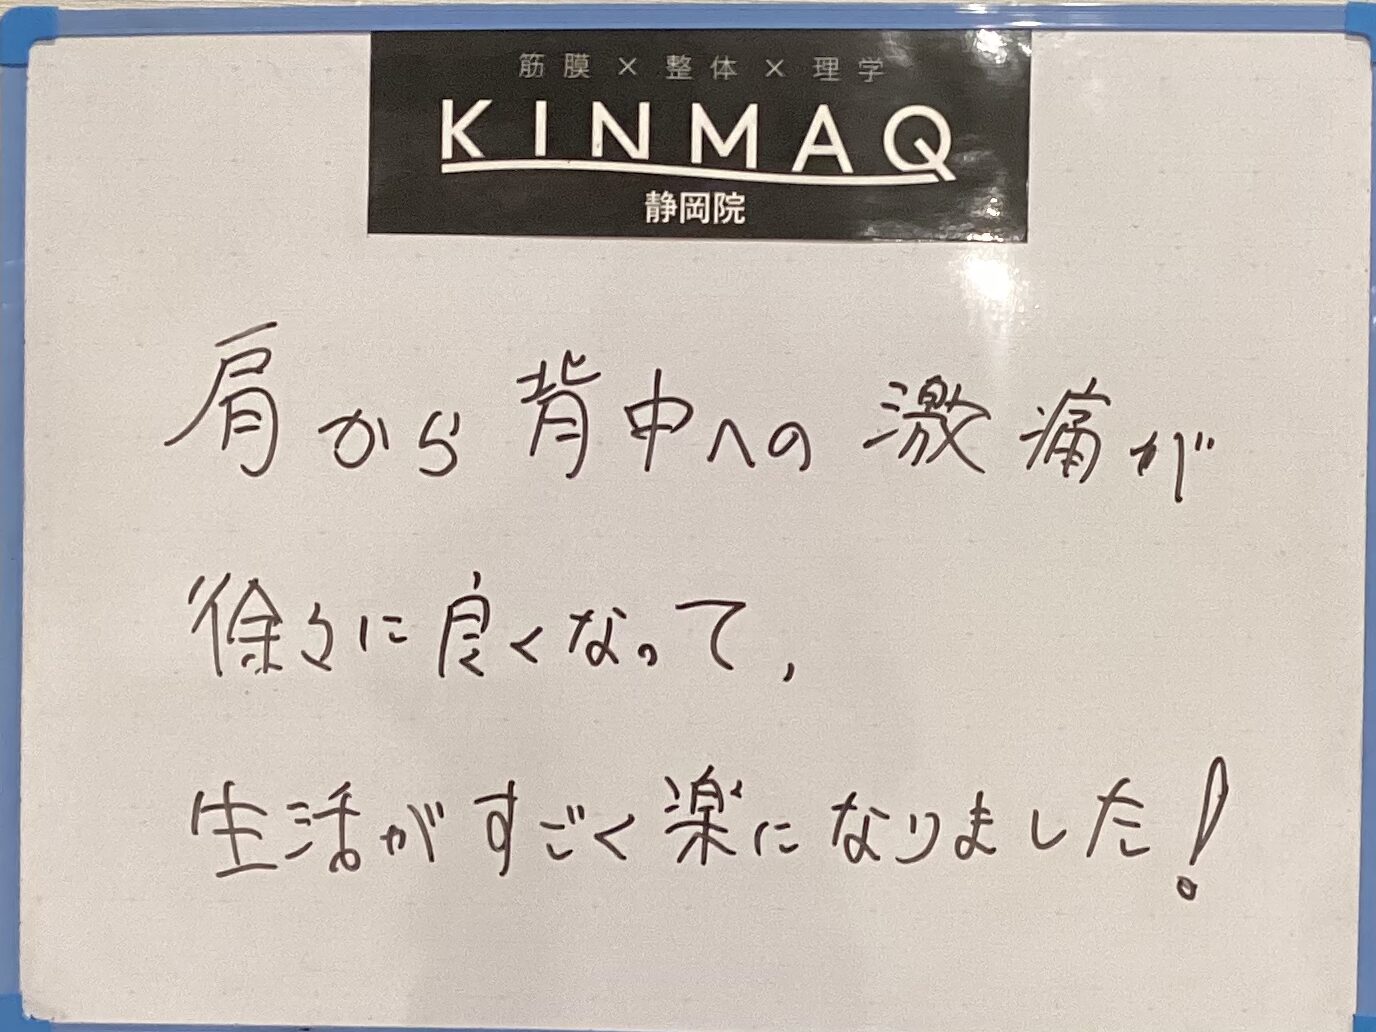 筋膜×整体×理学
KINMAQ
静岡院
肩から背中への激痛が
徐々に良くなって,
生活がすごく楽になりました!